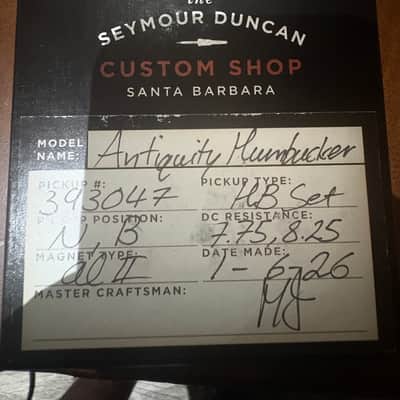 the
SEYMOUR DUNCAN
CUSTOM SHOP
SANTA BARBARA
MODEL NAME: Antiquity Humbucker
PICKUP #: PICKUP TYPE:
393047 HB Set
PICKUP POSITION: DC RESISTANCE:
N, B 7.75, 8.25
MAGNET TYPE: DATE MADE:
al II 1-6-26
MASTER CRAFTSMAN: MJ